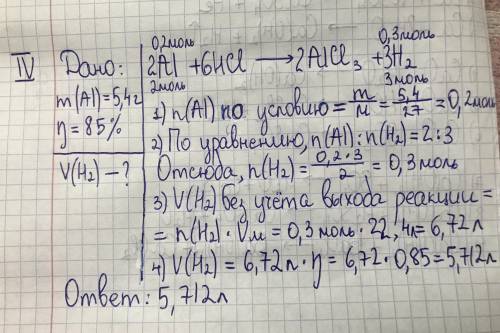 IV Дано:
m(Al)=5,4г
η=85%
V(H₂)-?
0,2моль 0,3моль
2Al+6HCl→2AlCl₃+3H₂
2моль 3моль
1) n(Al) по условию=m/M=5,4/27=0,2моль
2) По уравнению, n(Al):n(H₂)=2:3
Отсюда, n(H₂)=0,2·3/2=0,3моль
3) V(H₂) без учёта выхода реакции=
=n(H₂)·Vм=0,3моль·22,4л=6,72л
4) V(H₂)=6,72л·η=6,72·0,85=5,712л
Ответ: 5,712л